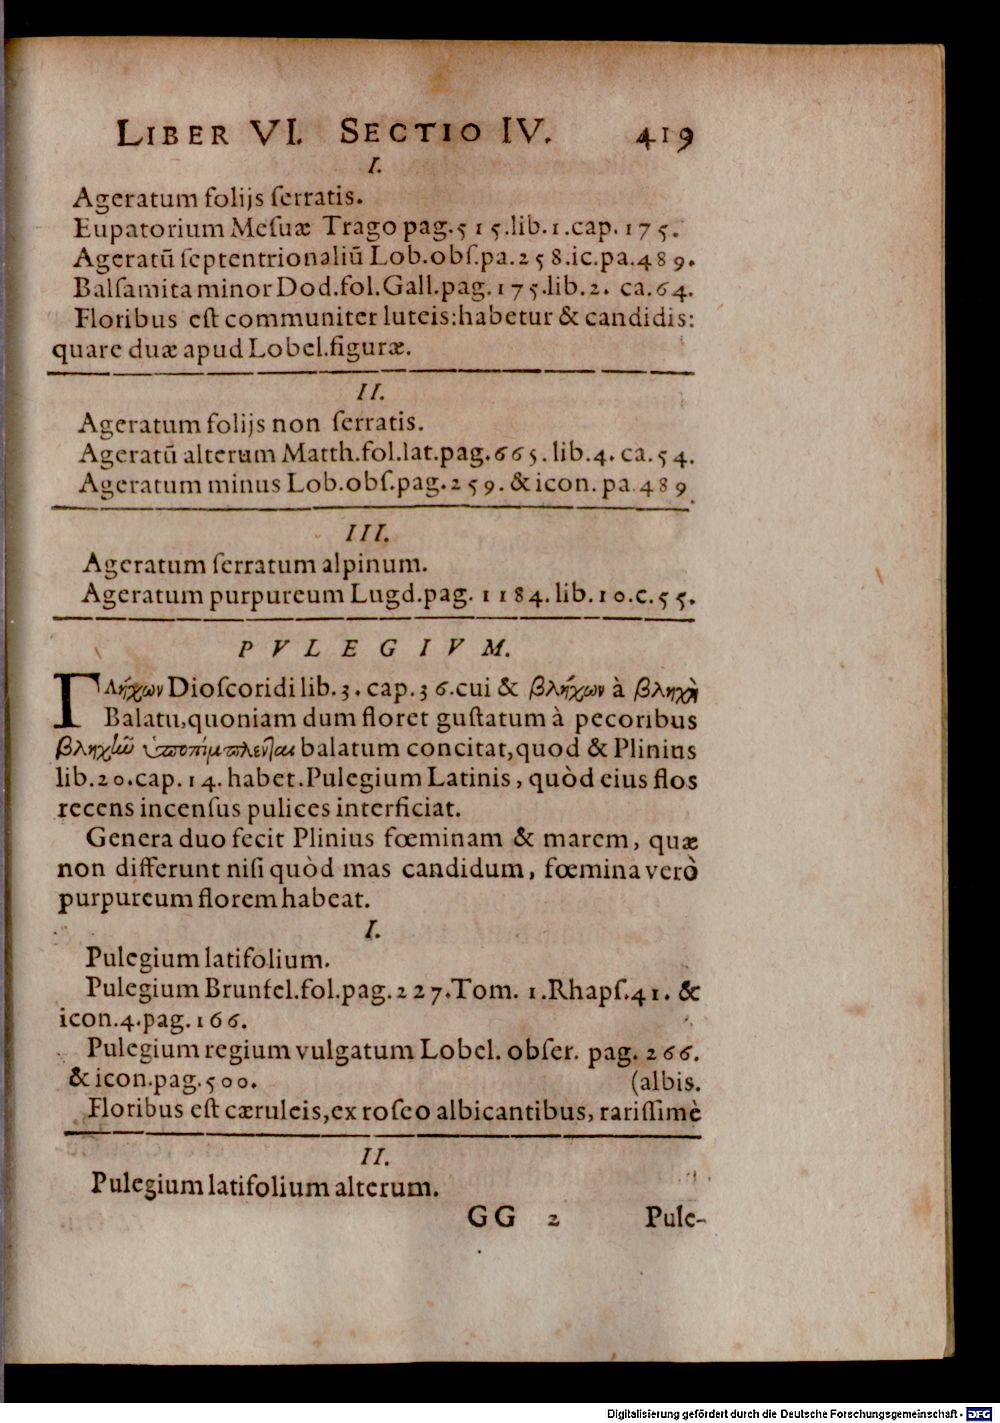 LIBER VI. SECTIO IV. 419
I.
Ageratum folijs ſerratis.
Eupatorium Meſuæ Trago pag.515.lib.1.cap.175.
Ageratũ ſeptentrionaliũ Lob.obſ.pa.258.ic.pa.489.
Balſamita minor Dod.fol.Gall.pag.175.lib.2. ca.64.
Floribus eſt communiter luteis:habetur & candidis:
quare duæ apud Lobel.figuræ.
II.
Ageratum folijs non ſerratis.
Ageratũ alterum Matth.fol.lat.pag.665.lib.4.ca.54.
Ageratum minus Lob.obſ.pag.259.&icon.pa.489
III.
Ageratum ſerratum alpinum.
Ageratum purpureum Lugd.pag. 1184.lib.10.c.55.
PVLEGIVM.
Γλήχων Dioſcoridi lib.3.cap.36.cui & βλήχων à βληχὴ
Balatu,quoniam dum floret guſtatum à pecoribus
βληχῶ balatum concitat,quod & Plinius
lib.20.cap.14.habet.Pulegium Latinis, quòd eius flos
recens incenſus pulices interficiat.
Genera duo fecit Plinius fœminam & marem, quæ
non differunt niſi quòd mas candidum, fœmina verò
purpureum florem habeat.
I.
Pulegium latifolium.
Pulegium Brunfel.fol.pag.227.Tom. 1.Rhapſ.41. &
icon.4.pag.166.
Pulegium regium vulgatum Lobel. obſer. pag. 266.
& icon.pag.500. (albis.
Floribus eſt cæruleis,ex roſeo albicantibus, rariſſimè
II.
Pulegium latifolium alterum.
GG 2 Pule-
Digitalisierung gefördert durch die Deutsche Forschungsgemeinschaft - DFG